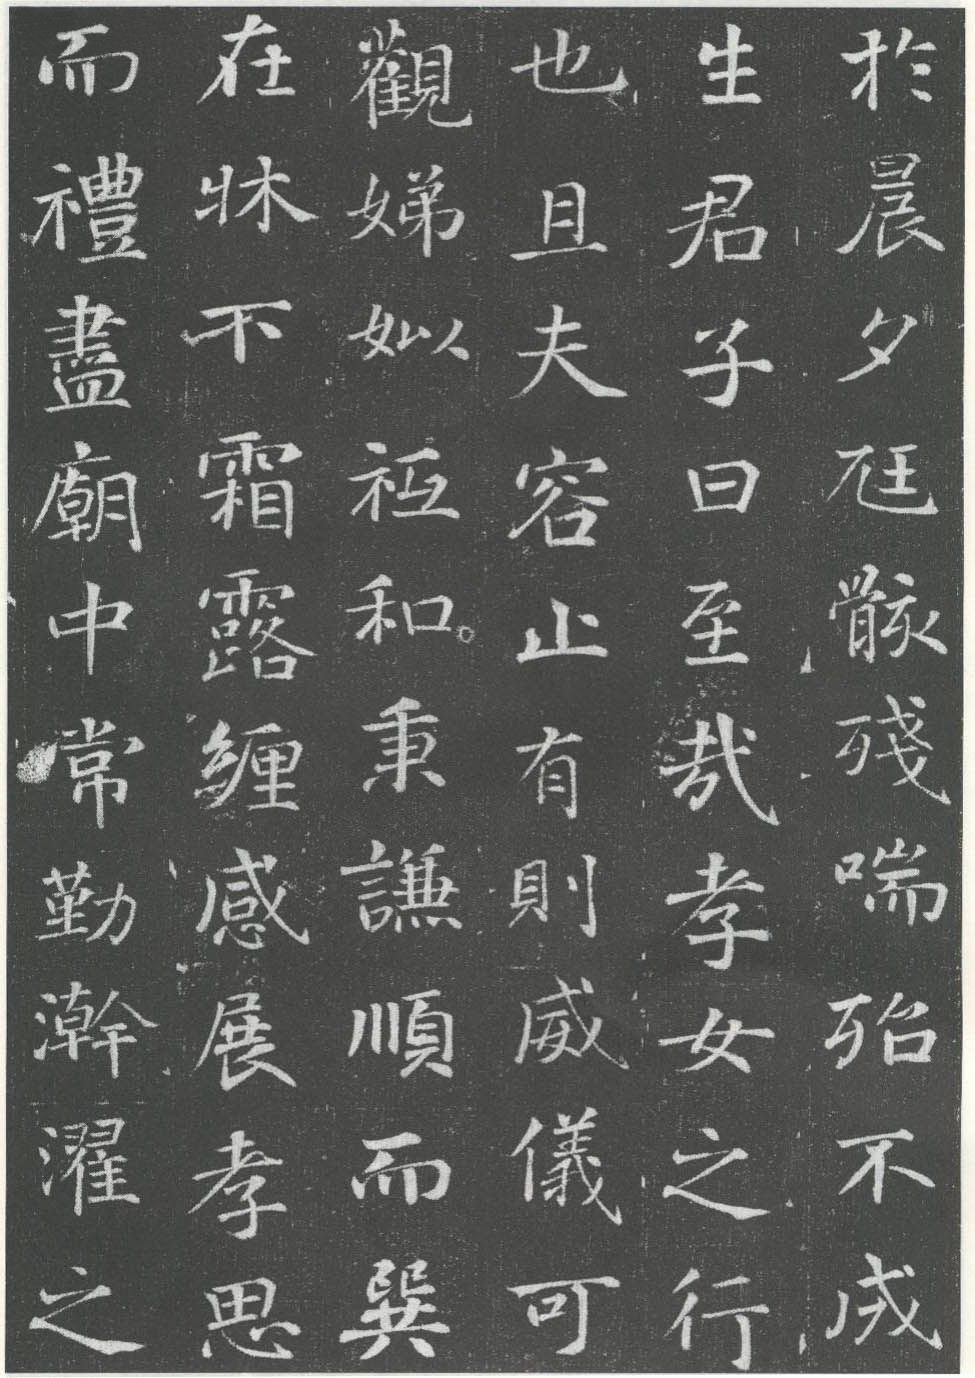 於晨夕尩骸殘喘殆不成
生君子曰至哉孝女之行
也且夫容止有則威儀可
觀娣姒祗和秉謙順而巽
在牀不霜露纏感展孝思
而禮盡廟中常勤澣濯之